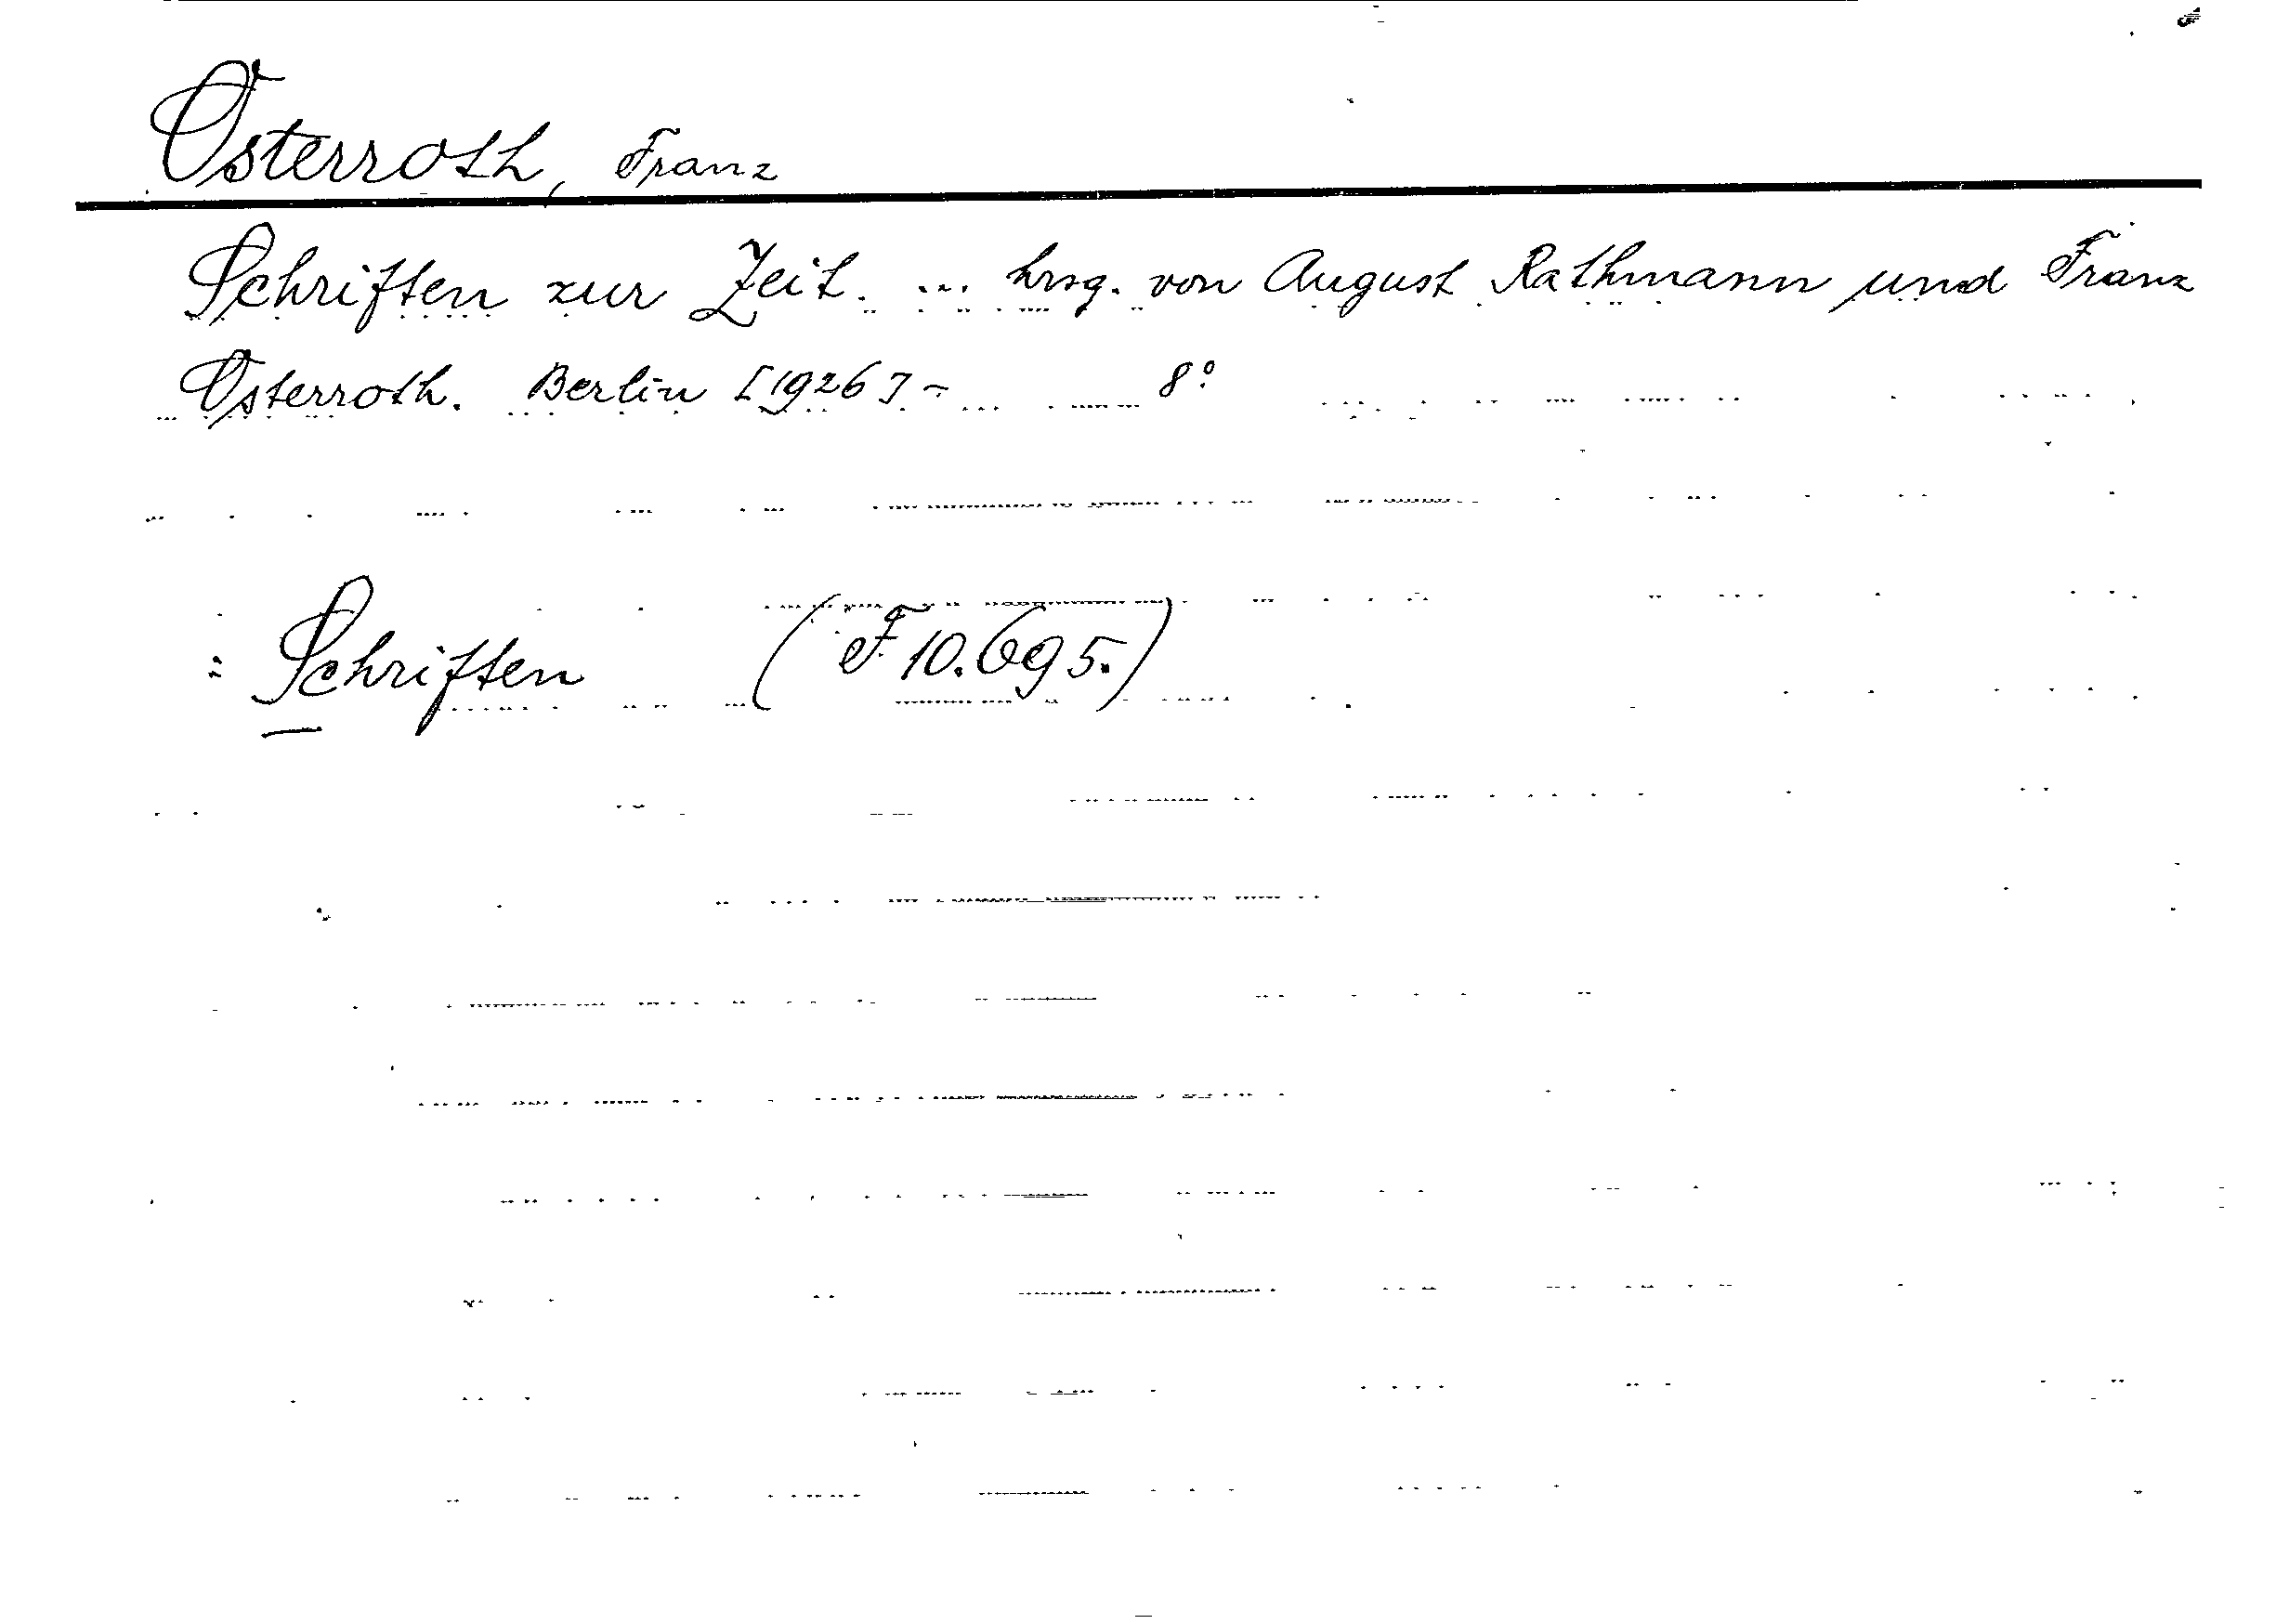 Osterroth, Franz
Schriften zur Zeit. ... hrsg. von August Rathmann und Franz
Osterroth. Berlin [1926]- 8°.
: Schriften (F 10.695.)